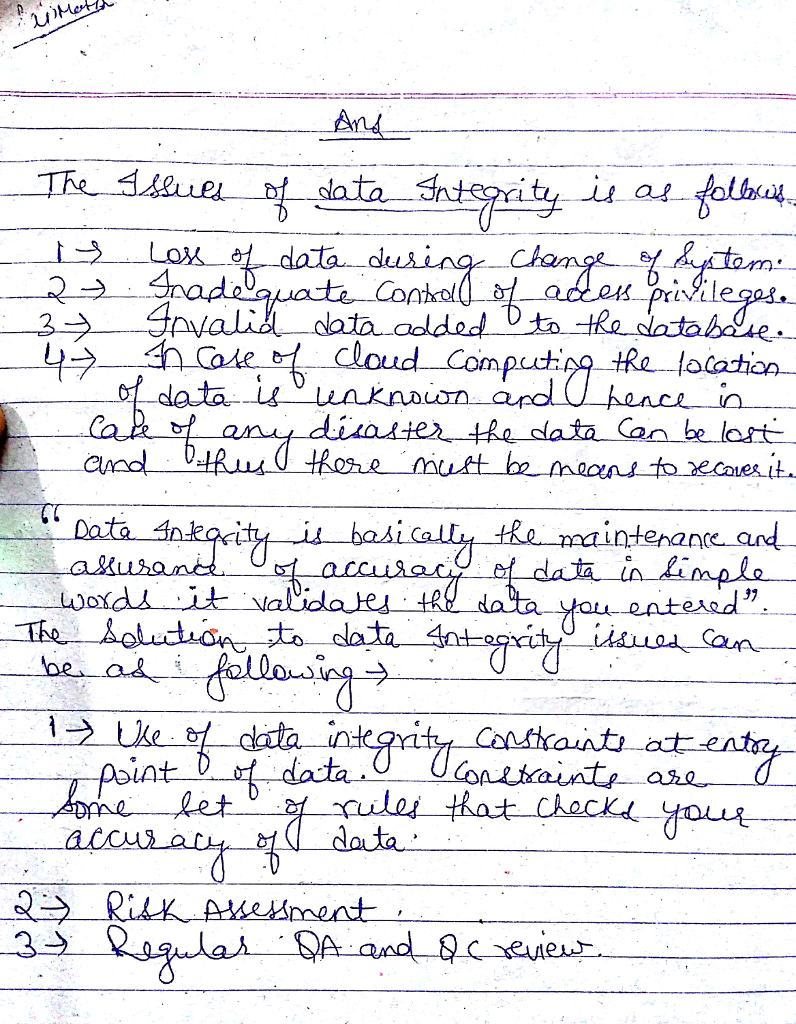 Ans
The Issues of data Integrity is as follows.
1→ Loss of data during change of System.
2→ Inadequate Controll of access privileges.
3→ Invalid data added to the database.
4→ In Case of Cloud Computing the location
of data is unknown and hence in
Case of any disaster the data Can be lost
and thus there must be means to recover it.
“Data Integrity is basically the maintenance and
assurance of accuracy of data in Simple
words it validates the data you entered”.
The Solution to data Integrity issues can
be as following →
1→ Use of data integrity Constraints at entry
point of data. Constraints are
Some Set of rules that Checks your
accuracy of data.
2→ Risk Assessment.
3→ Regular QA and QC review.